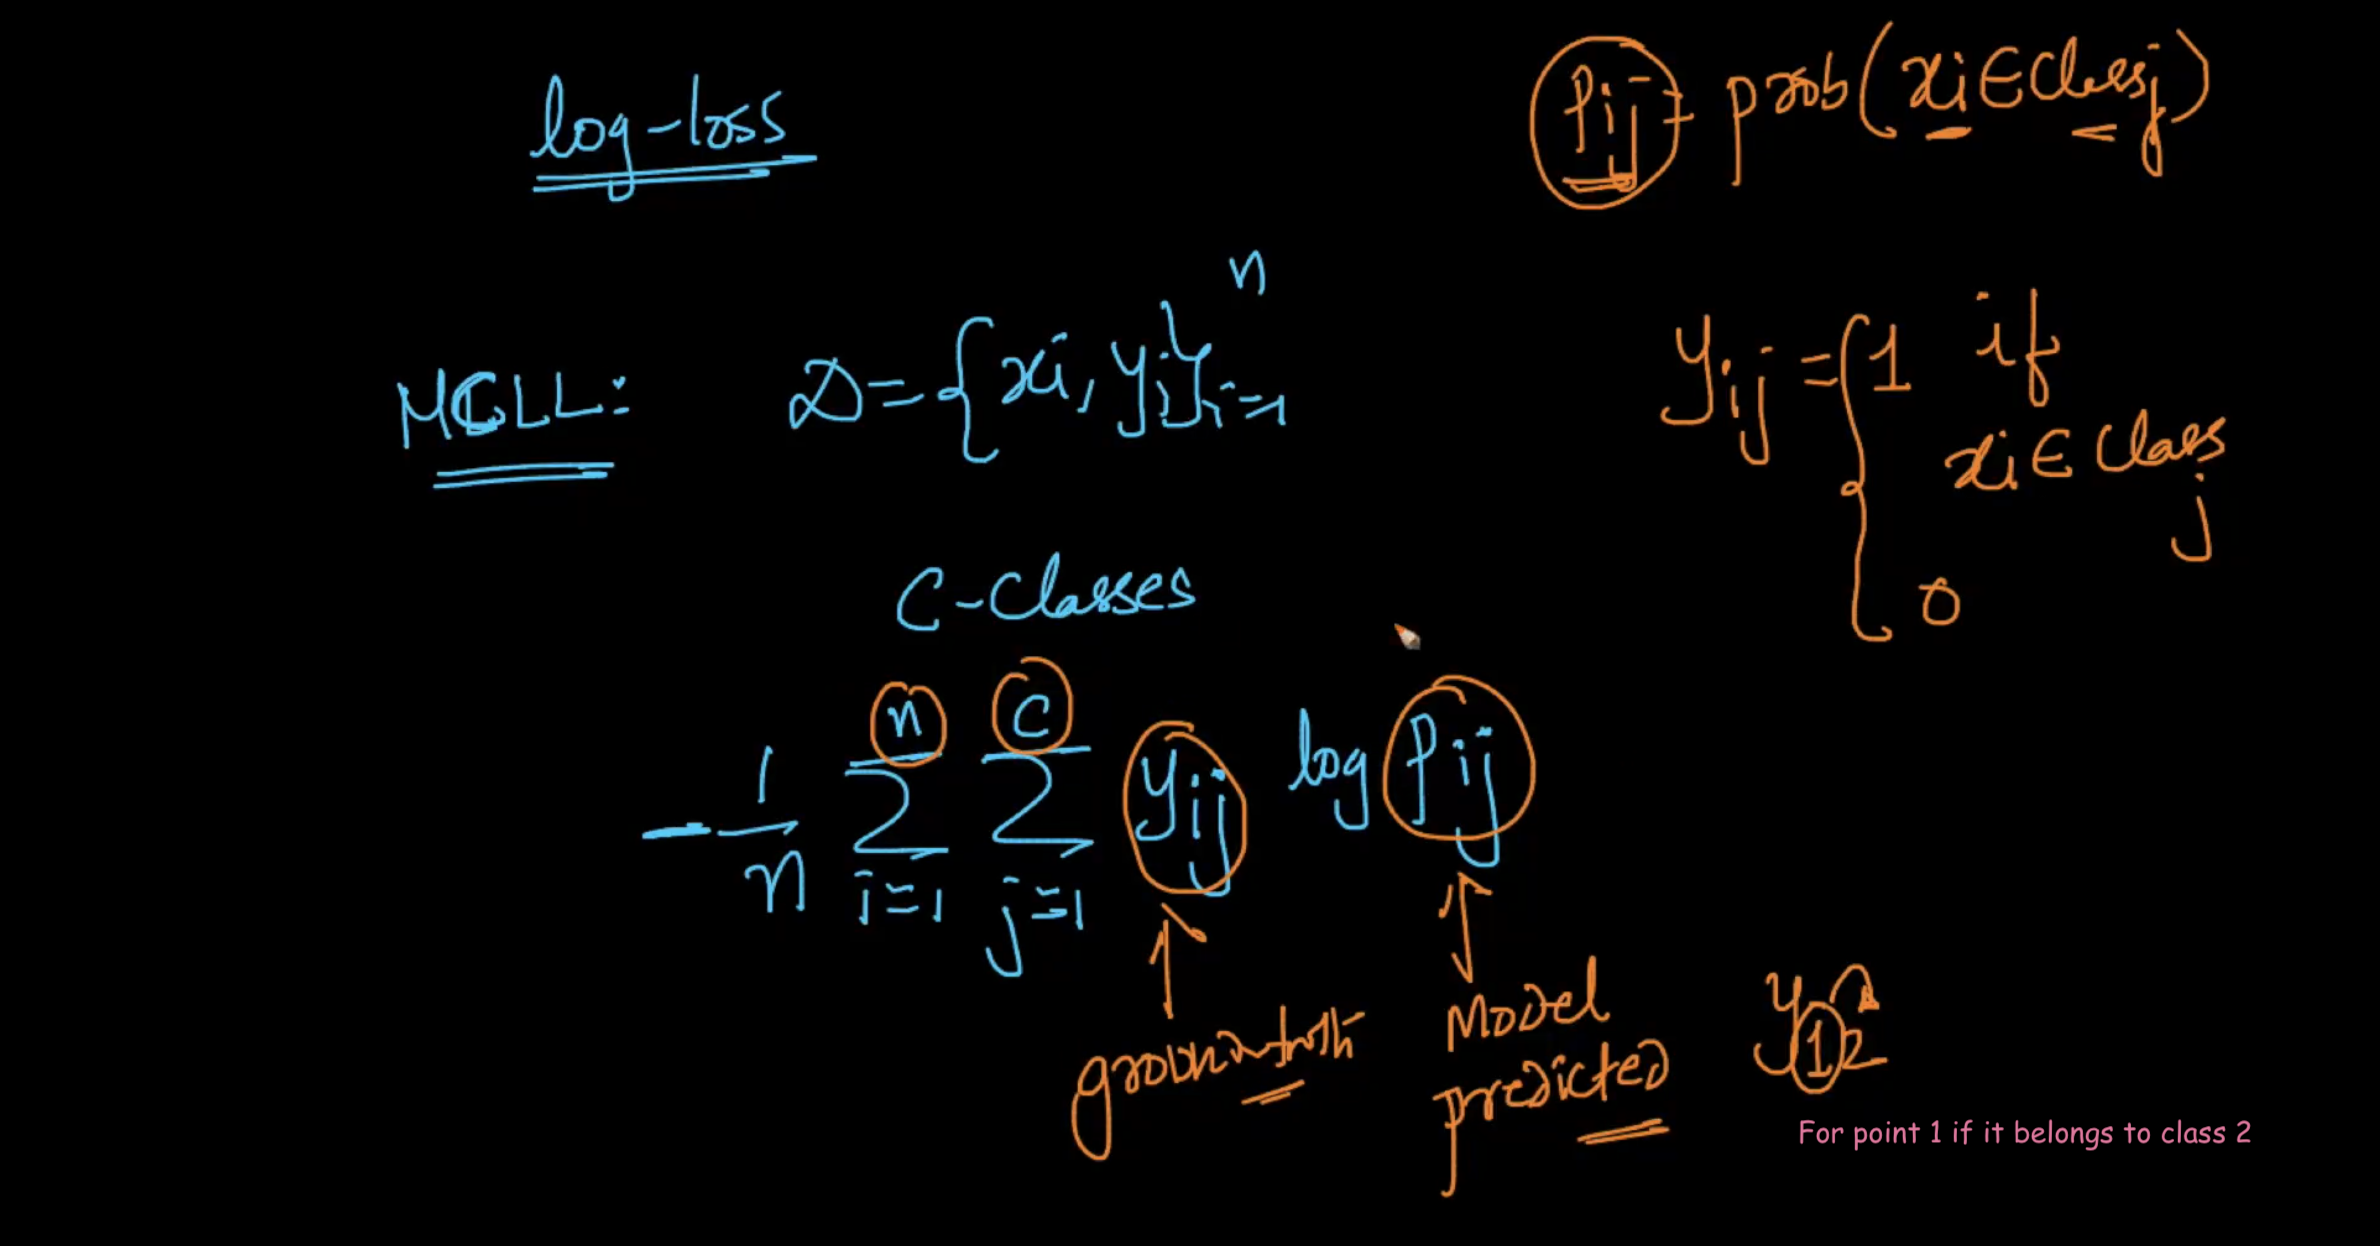 log-loss
Pij = prob(xi ∈ Class j)
MCLL: D = {xi, yi}ⁿ i=1
yij = { 1 if
xi ∈ Class j
0
C-Classes
n C
- 1/n Σ Σ yij log Pij
i=1 j=1
ground truth
Model
predicted
y12
For point 1 if it belongs to class 2